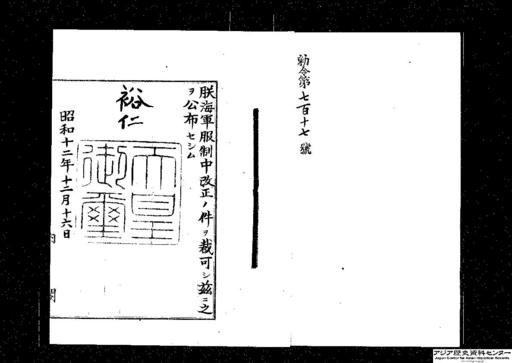 勅令第七百十七號
朕海軍服制中改正ノ件ヲ裁可シ茲ニ之
ヲ公布セシム
裕仁
天皇
御璽
昭和十二年十二月十六日
内閣
アジア歴史資料センター
Japan Center for Asian Historical Records